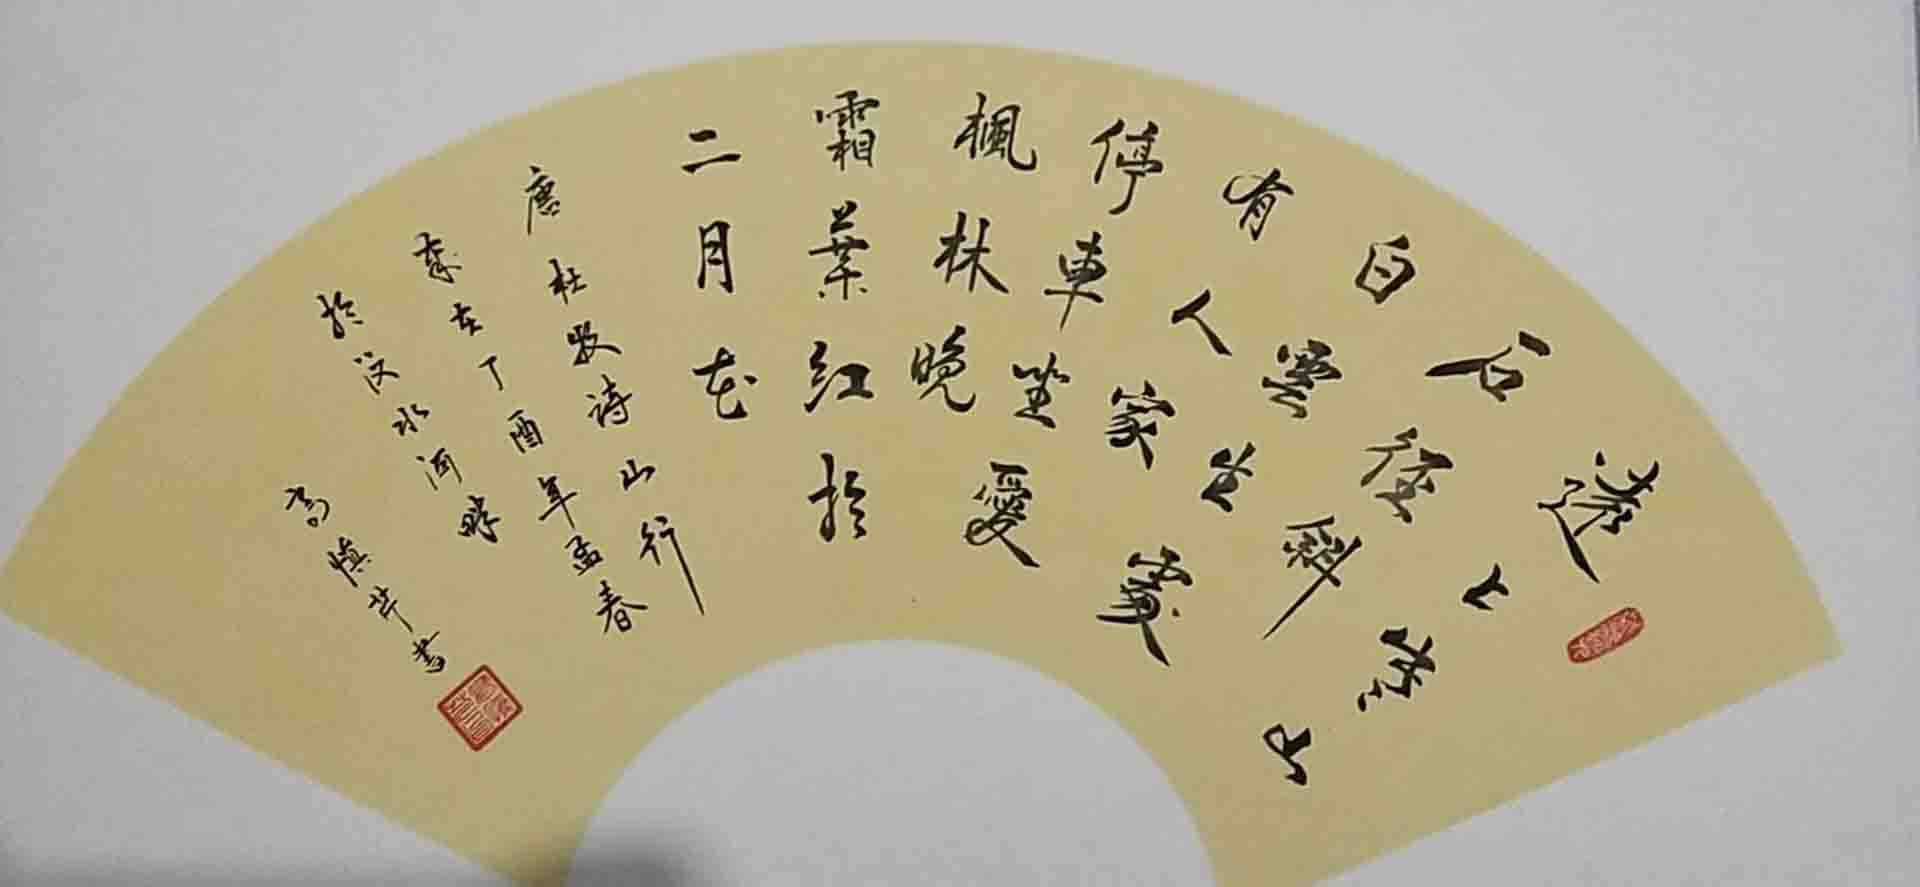 遠上寒山
石徑斜
白雲生處
有人家
停車坐愛
楓林晚
霜葉紅於
二月花
唐杜牧詩山行
歲在丁酉年孟春
於汶水河畔
高慎芹書